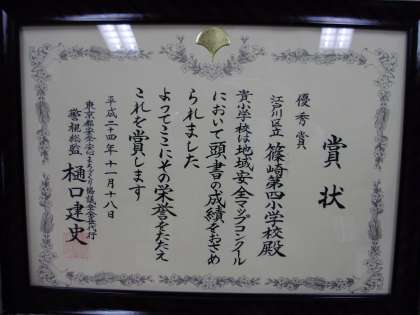 賞状
優秀賞
江戸川区立 篠崎第四小学校殿
貴小学校は地域安全マップコンクール
において頭書の成績をおさめ
られました
よってここにその栄誉をたたえ
これを賞します
平成二十四年十一月十八日
警視総監 樋口建史